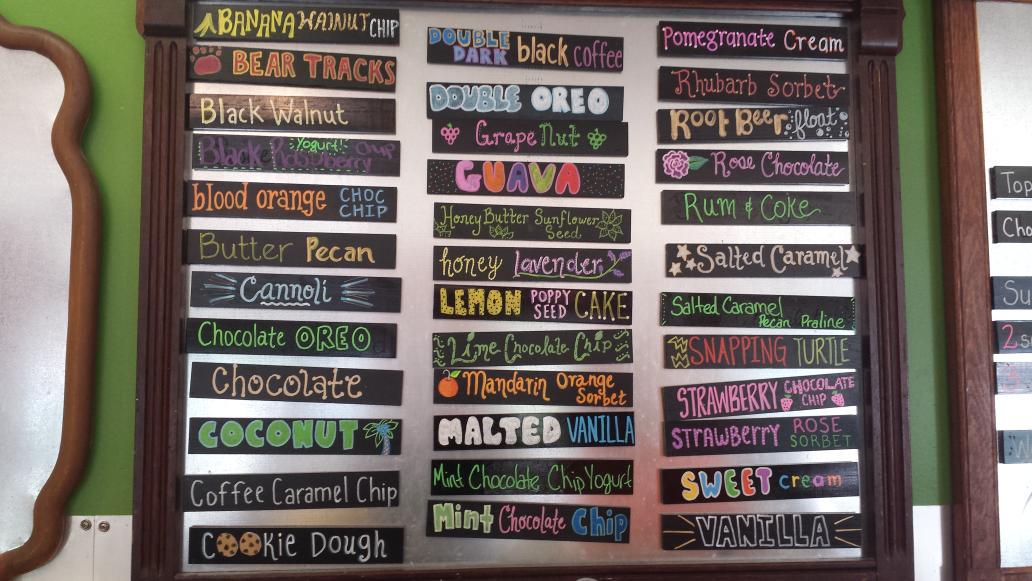 BANANA WALNUT CHIP
BEAR TRACKS
Black Walnut
Yogurt!
Black Raspberry Chip
blood orange CHOC
CHIP
Butter Pecan
Cannoli
Chocolate OREO
Chocolate
COCONUT
Coffee Caramel Chip
COOKie Dough
DOUBLE
DARK black coffee
DOUBLE OREO
Grape Nut
GUAVA
Honey Butter Sunflower
Seed
honey Lavender
LEMON POPPY
SEED CAKE
Lime Chocolate Chip
Mandarin Orange
Sorbet
MALTED VANILLA
Mint Chocolate Chip Yogurt
Mint Chocolate Chip
Pomegranate Cream
Rhubarb Sorbet
Root Beer float
Rose Chocolate
Rum & Coke
Salted Caramel
Salted Caramel
Pecan Praline
SNAPPING TURTLE
STRAWBERRY CHOCOLATE
CHIP
STRAWBERRY ROSE
SORBET
SWEET cream
VANILLA
Top
Cho
Su
2